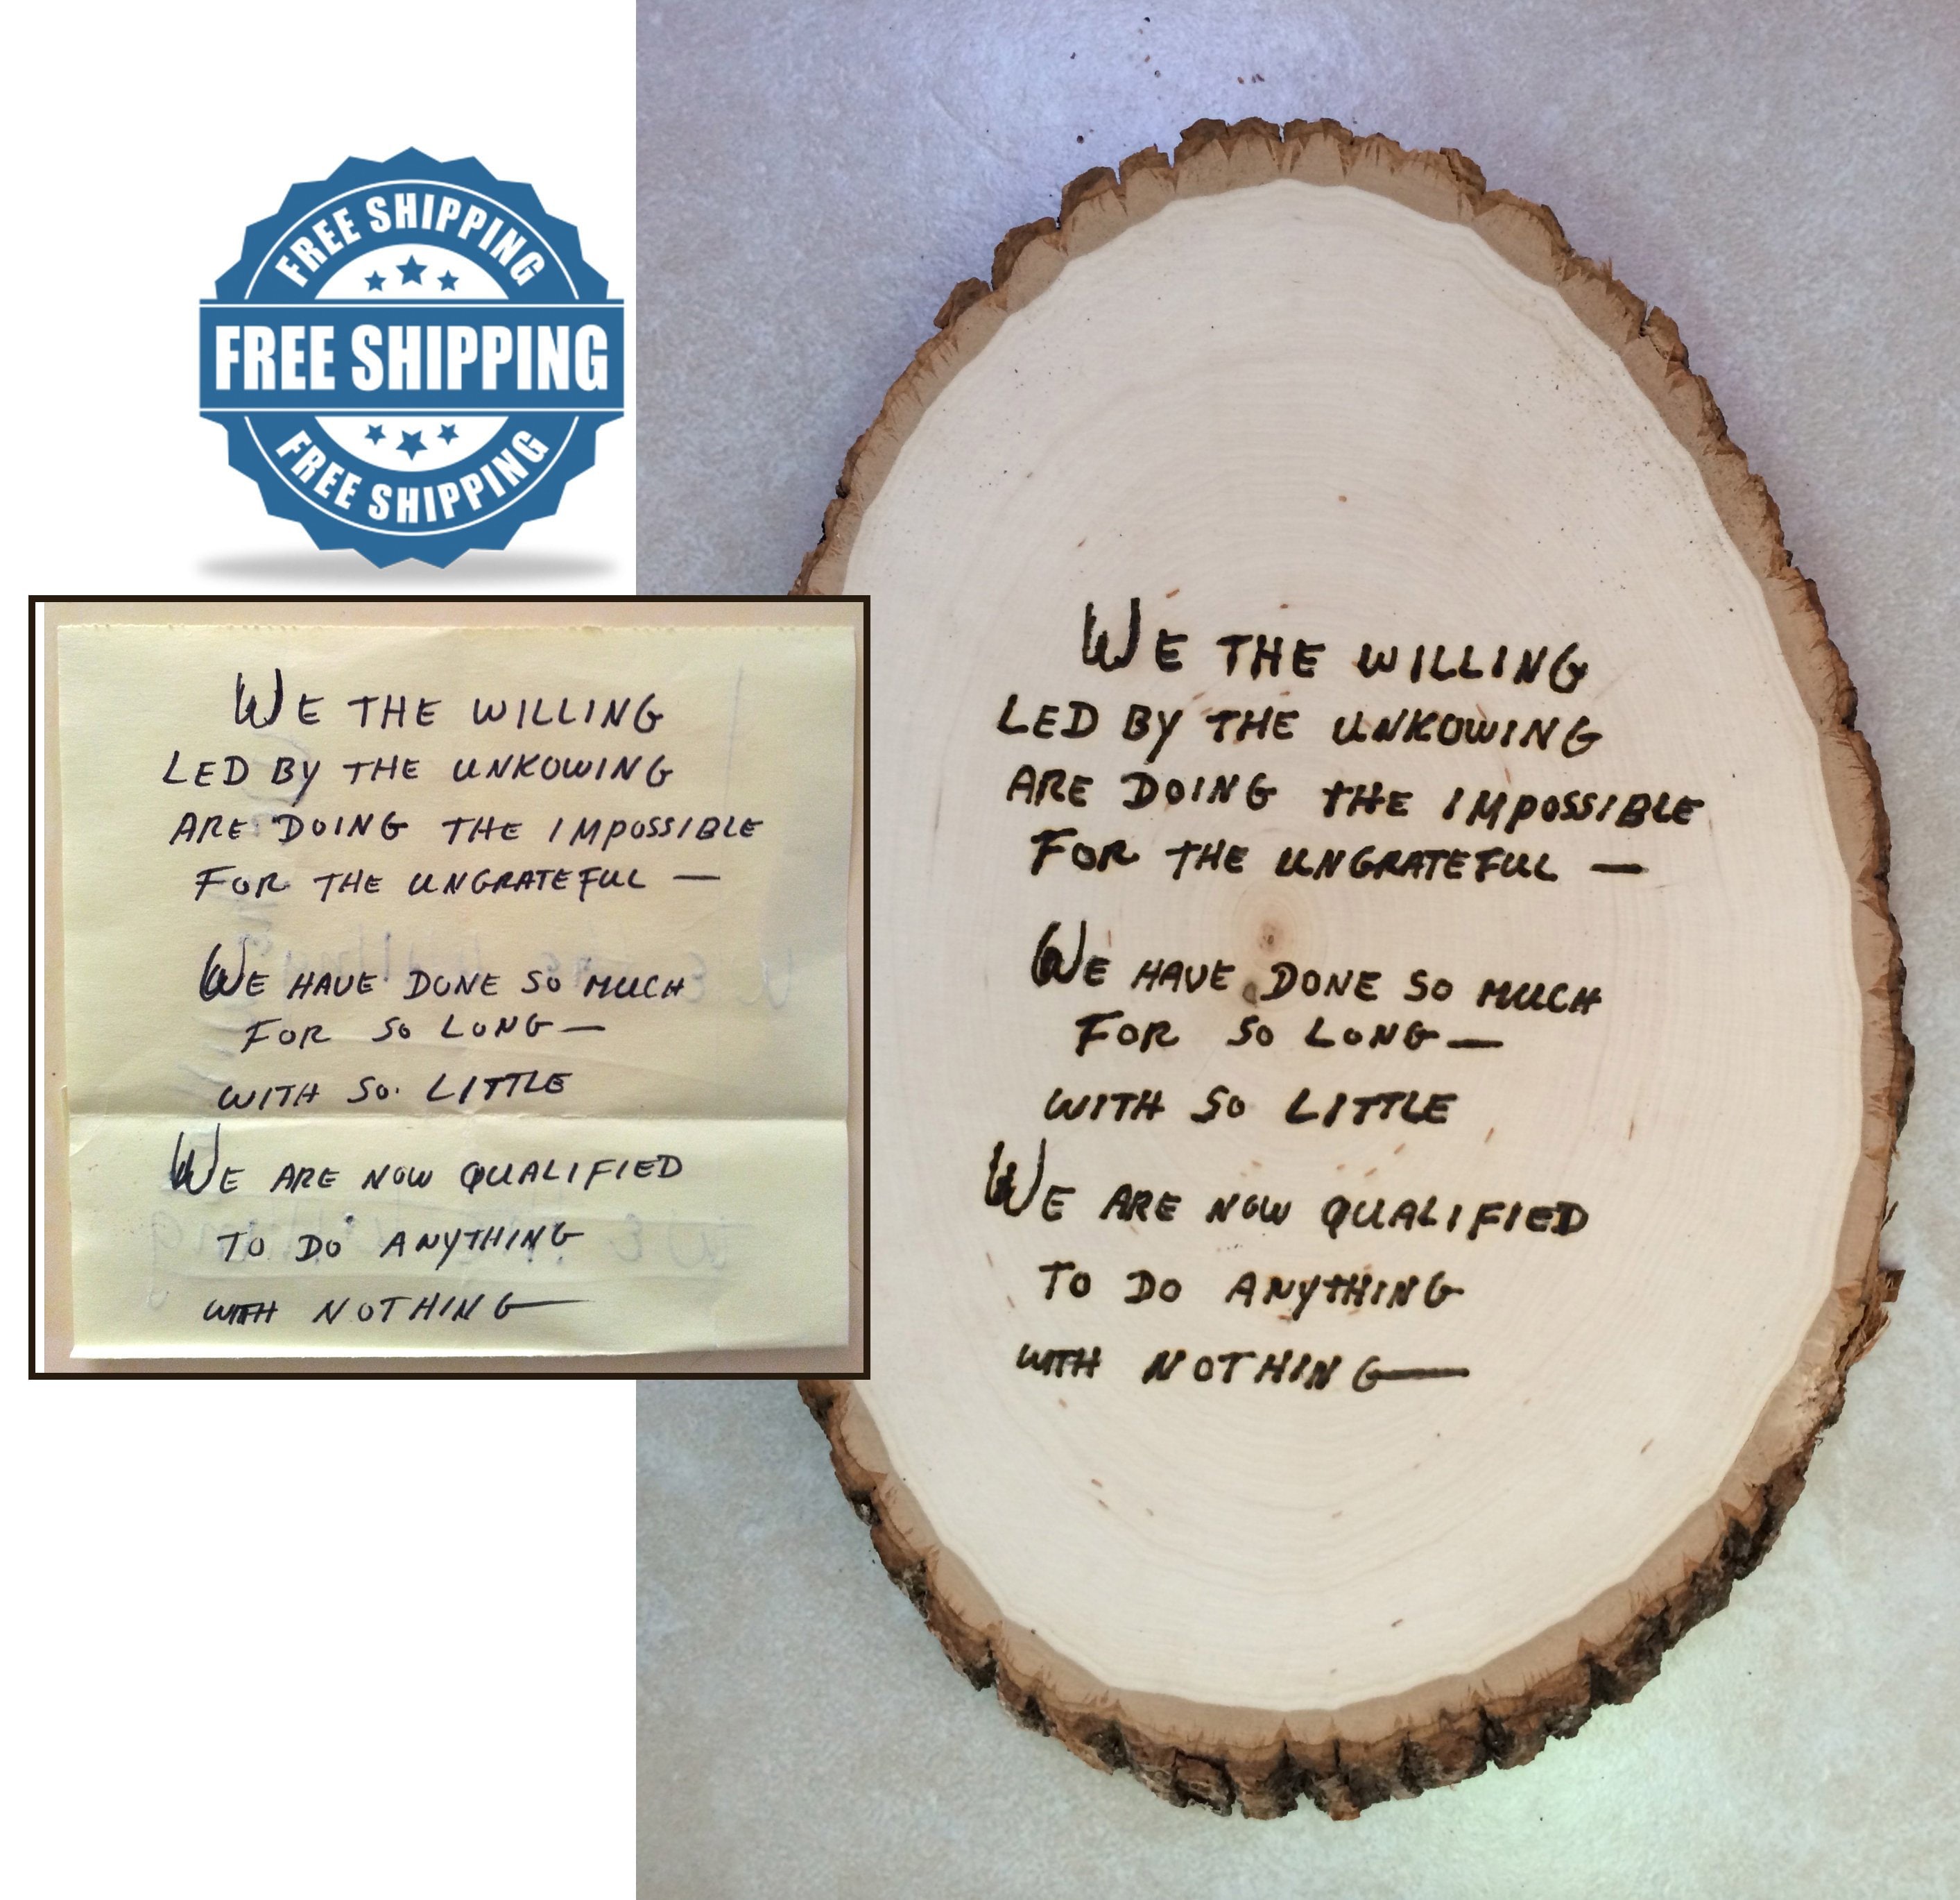 FREE SHIPPING
FREE SHIPPING
FREE SHIPPING
WE THE WILLING
LED BY THE UNKOWING
ARE DOING THE IMPOSSIBLE
FOR THE UNGRATEFUL —
WE HAVE DONE SO MUCH
FOR SO LONG —
WITH SO LITTLE
WE ARE NOW QUALIFIED
TO DO ANYTHING
WITH NOTHING —
WE THE WILLING
LED BY THE UNKOWING
ARE DOING THE IMPOSSIBLE
FOR THE UNGRATEFUL —
WE HAVE DONE SO MUCH
FOR SO LONG —
WITH SO LITTLE
WE ARE NOW QUALIFIED
TO DO ANYTHING
WITH NOTHING —